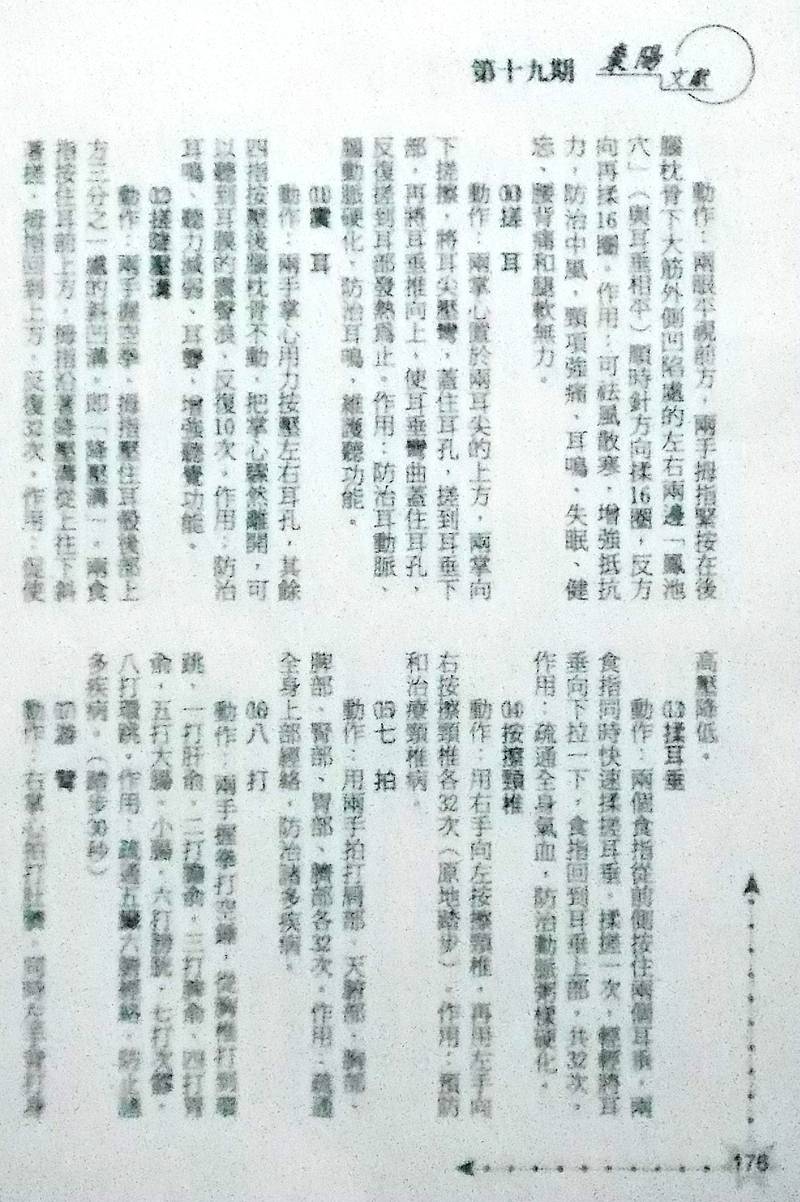 第十九期
棗陽
文獻
動作：兩眼平視前方，兩手拇指緊按在後
腦枕骨下大筋外側凹陷處的左右兩邊「鳳池
穴」（與耳垂相平）順時針方向揉16圈，反方
向再揉16圈。作用：可祛風散寒，增強抵抗
力，防治中風，頸項強痛、耳鳴、失眠、健
忘、腰背痛和腿軟無力。
⑽搓　耳
動作：兩掌心置於兩耳尖的上方，兩掌向
下搓擦，將耳尖壓彎，蓋住耳孔，搓到耳垂下
部，再將耳垂推向上，使耳垂彎曲蓋住耳孔，
反復搓到耳部發熱爲止。作用：防治耳動脈、
腦動脈硬化，防治耳鳴，維護聽功能。
⑾震　耳
動作：兩手掌心用力按壓左右耳孔，其餘
四指按壓後腦枕骨不動，把掌心驟然離開，可
以聽到耳膜的震聲浪，反復10次。作用：防治
耳鳴、聽力減弱、耳聾，增強聽覺功能。
⑿搓降壓溝
動作：兩手握空拳，拇指壓住耳殼後部上
方三分之一處的斜凹溝。即「降壓溝」。兩食
指按住耳前上方，拇指沿著降壓溝從上往下斜
著搓，拇指回到上方，反復32次。作用：促使
高壓降低。
⒀揉耳垂
動作：兩個食指從前側按住兩個耳垂，兩
食指同時快速揉搓耳垂。揉搓一次，輕輕將耳
垂向下拉一下，食指回到耳垂上部，共32次。
作用：疏通全身氣血，防治動脈粥樣硬化。
⒁按擦頸椎
動作：用右手向左按擦頸椎，再用左手向
右按擦頸椎各32次（原地踏步）。作用：預防
和治療頸椎病。
⒂七　拍
動作：用兩手拍打肩部、天髎部、胸部、
脾部、腎部、胃部、臍部各32次。作用：疏通
全身上部經絡，防治諸多疾病。
⒃八　打
動作：兩手握拳打空錘，從胸椎打到環
跳，一打肝俞，二打膽俞，三打脾俞、四打胃
俞，五打大腸。小腸，六打膀胱，七打次髎，
八打環跳。作用：疏通五臟六腑經絡，防止諸
多疾病。（踏步30秒）
⒄游　臂
動作：右掌心拍打肚臍，同時左手背打身
176